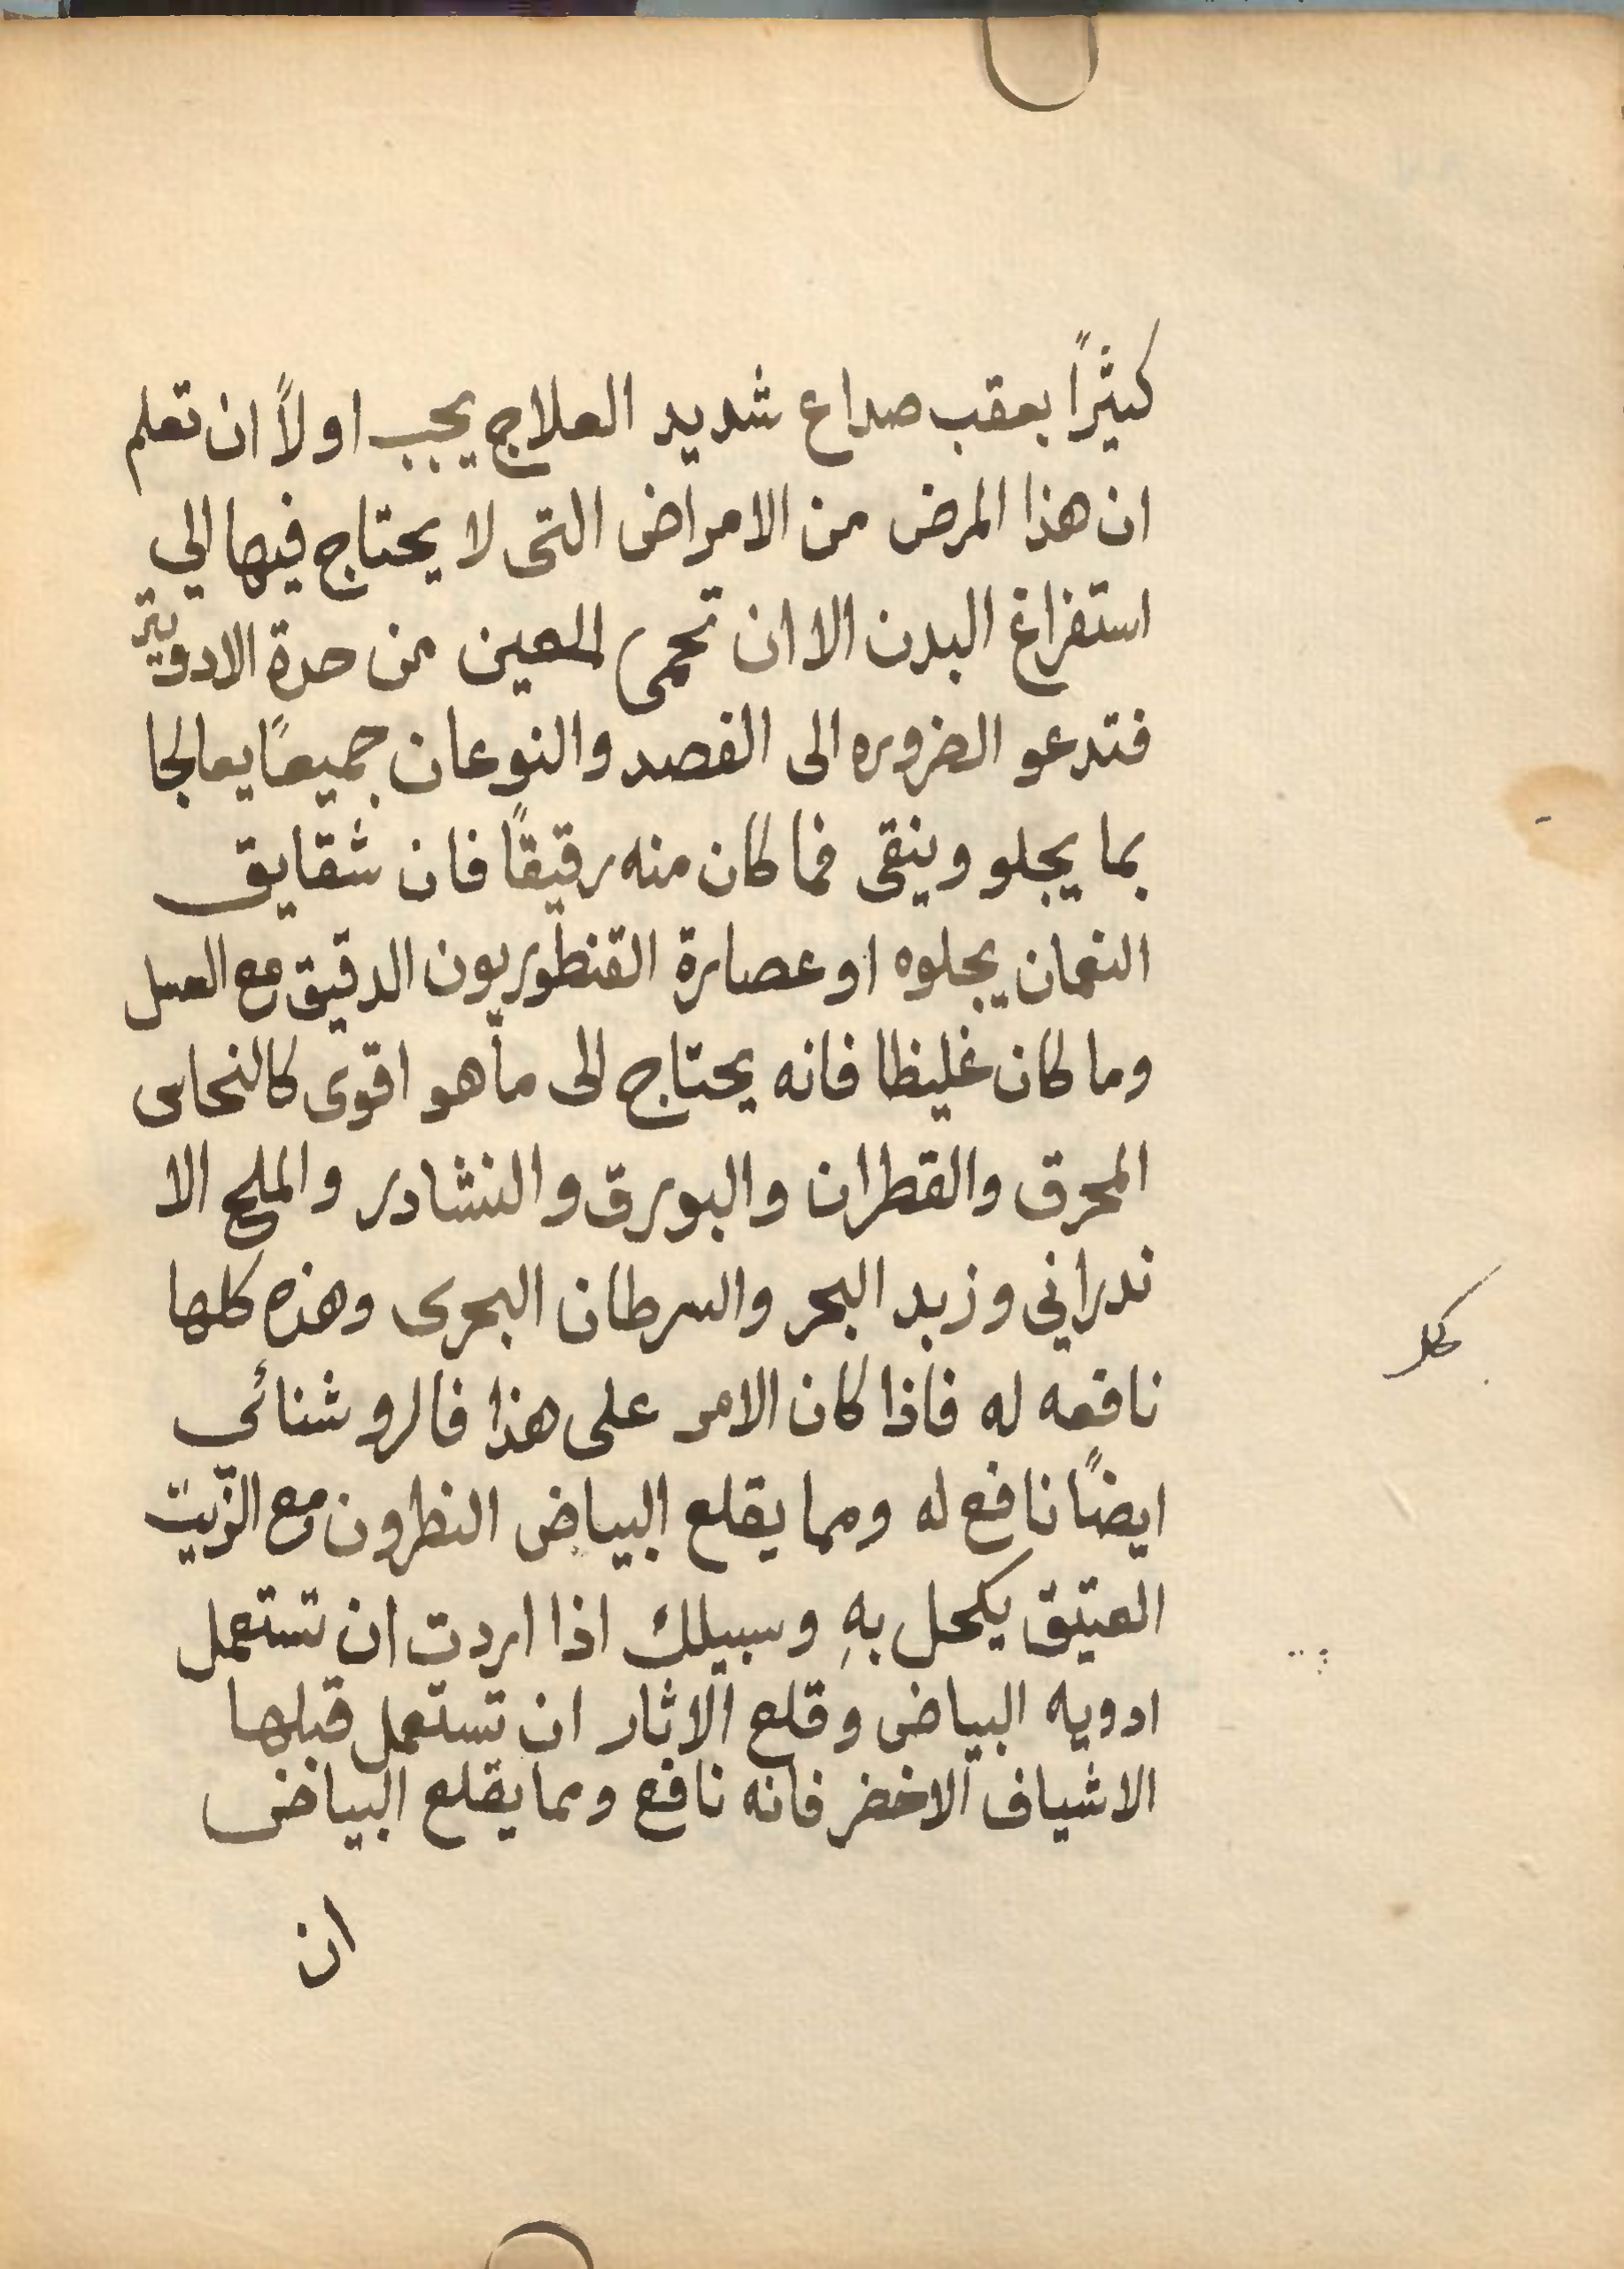 كثيرًا بعقب صداع شديد العلاج يجب اولاً ان تعلم
ان هذا المرض من الامراض التى لا يحتاج فيها الي
استفراغ البدن الا ان تحمى العين من حدة الادوية
فتدعو الضروره الى الفصد والنوعان جميعًا يعالجا
بما يجلو وينقى فما كان منه رقيقًا فان شقايق
النعمان يجلوه او عصارة القنطوريون الدقيق مع العسل
وما كان غليظا فانه يحتاج الى ما هو اقوى كالنحاس
المحرق والقطران والبورق والنشادر والملح الا
ندراني وزبد البحر والسرطان البحرى وهذه كلها
نافعه له فاذا كان الامر على هذا فالروشنائي
ايضًا نافع له ومما يقلع البياض النطرون مع الزيت
العتيق يكحل بهِ وسبيلك اذا اردت ان تستعمل
ادويه البياض وقلع الاثار ان تستعمل قبلها
الاشياف الاخضر فانه نافع ومما يقلع البياض
ان